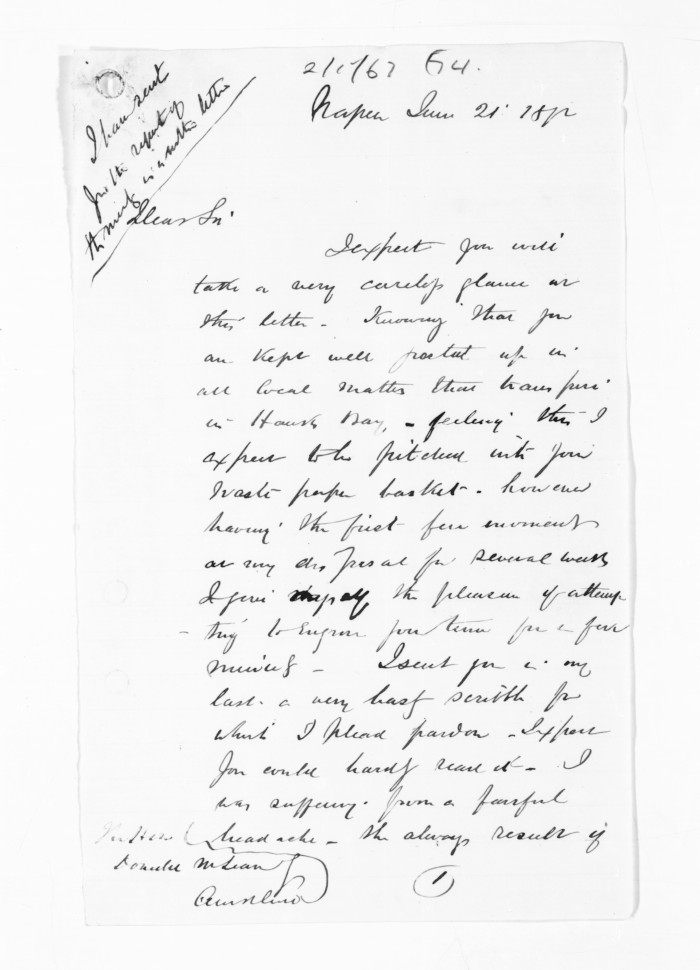 I have sent
for the report of
the minets
in another letter
Napier June 21 187
Dear Sir
I expect you will
take a very careless glance at
this letter - Knowing that you
are Kept well posted up in
all local matters that transpire
in Hawks Bay, - feeling this I
expect to be pitched into your
Waste paper basket - however
having the first few moments
at my disposal for several weeks
I give myself the pleasure of attemp
- ting to Engross your time for a few
minits - I sent you in my
last - a very hasty scribble for
which I plead pardon - I expect
you could hardly read it - I
was suffering from a fearful
headache - the always result of
The Hon
Donald McLean
Auckland
1